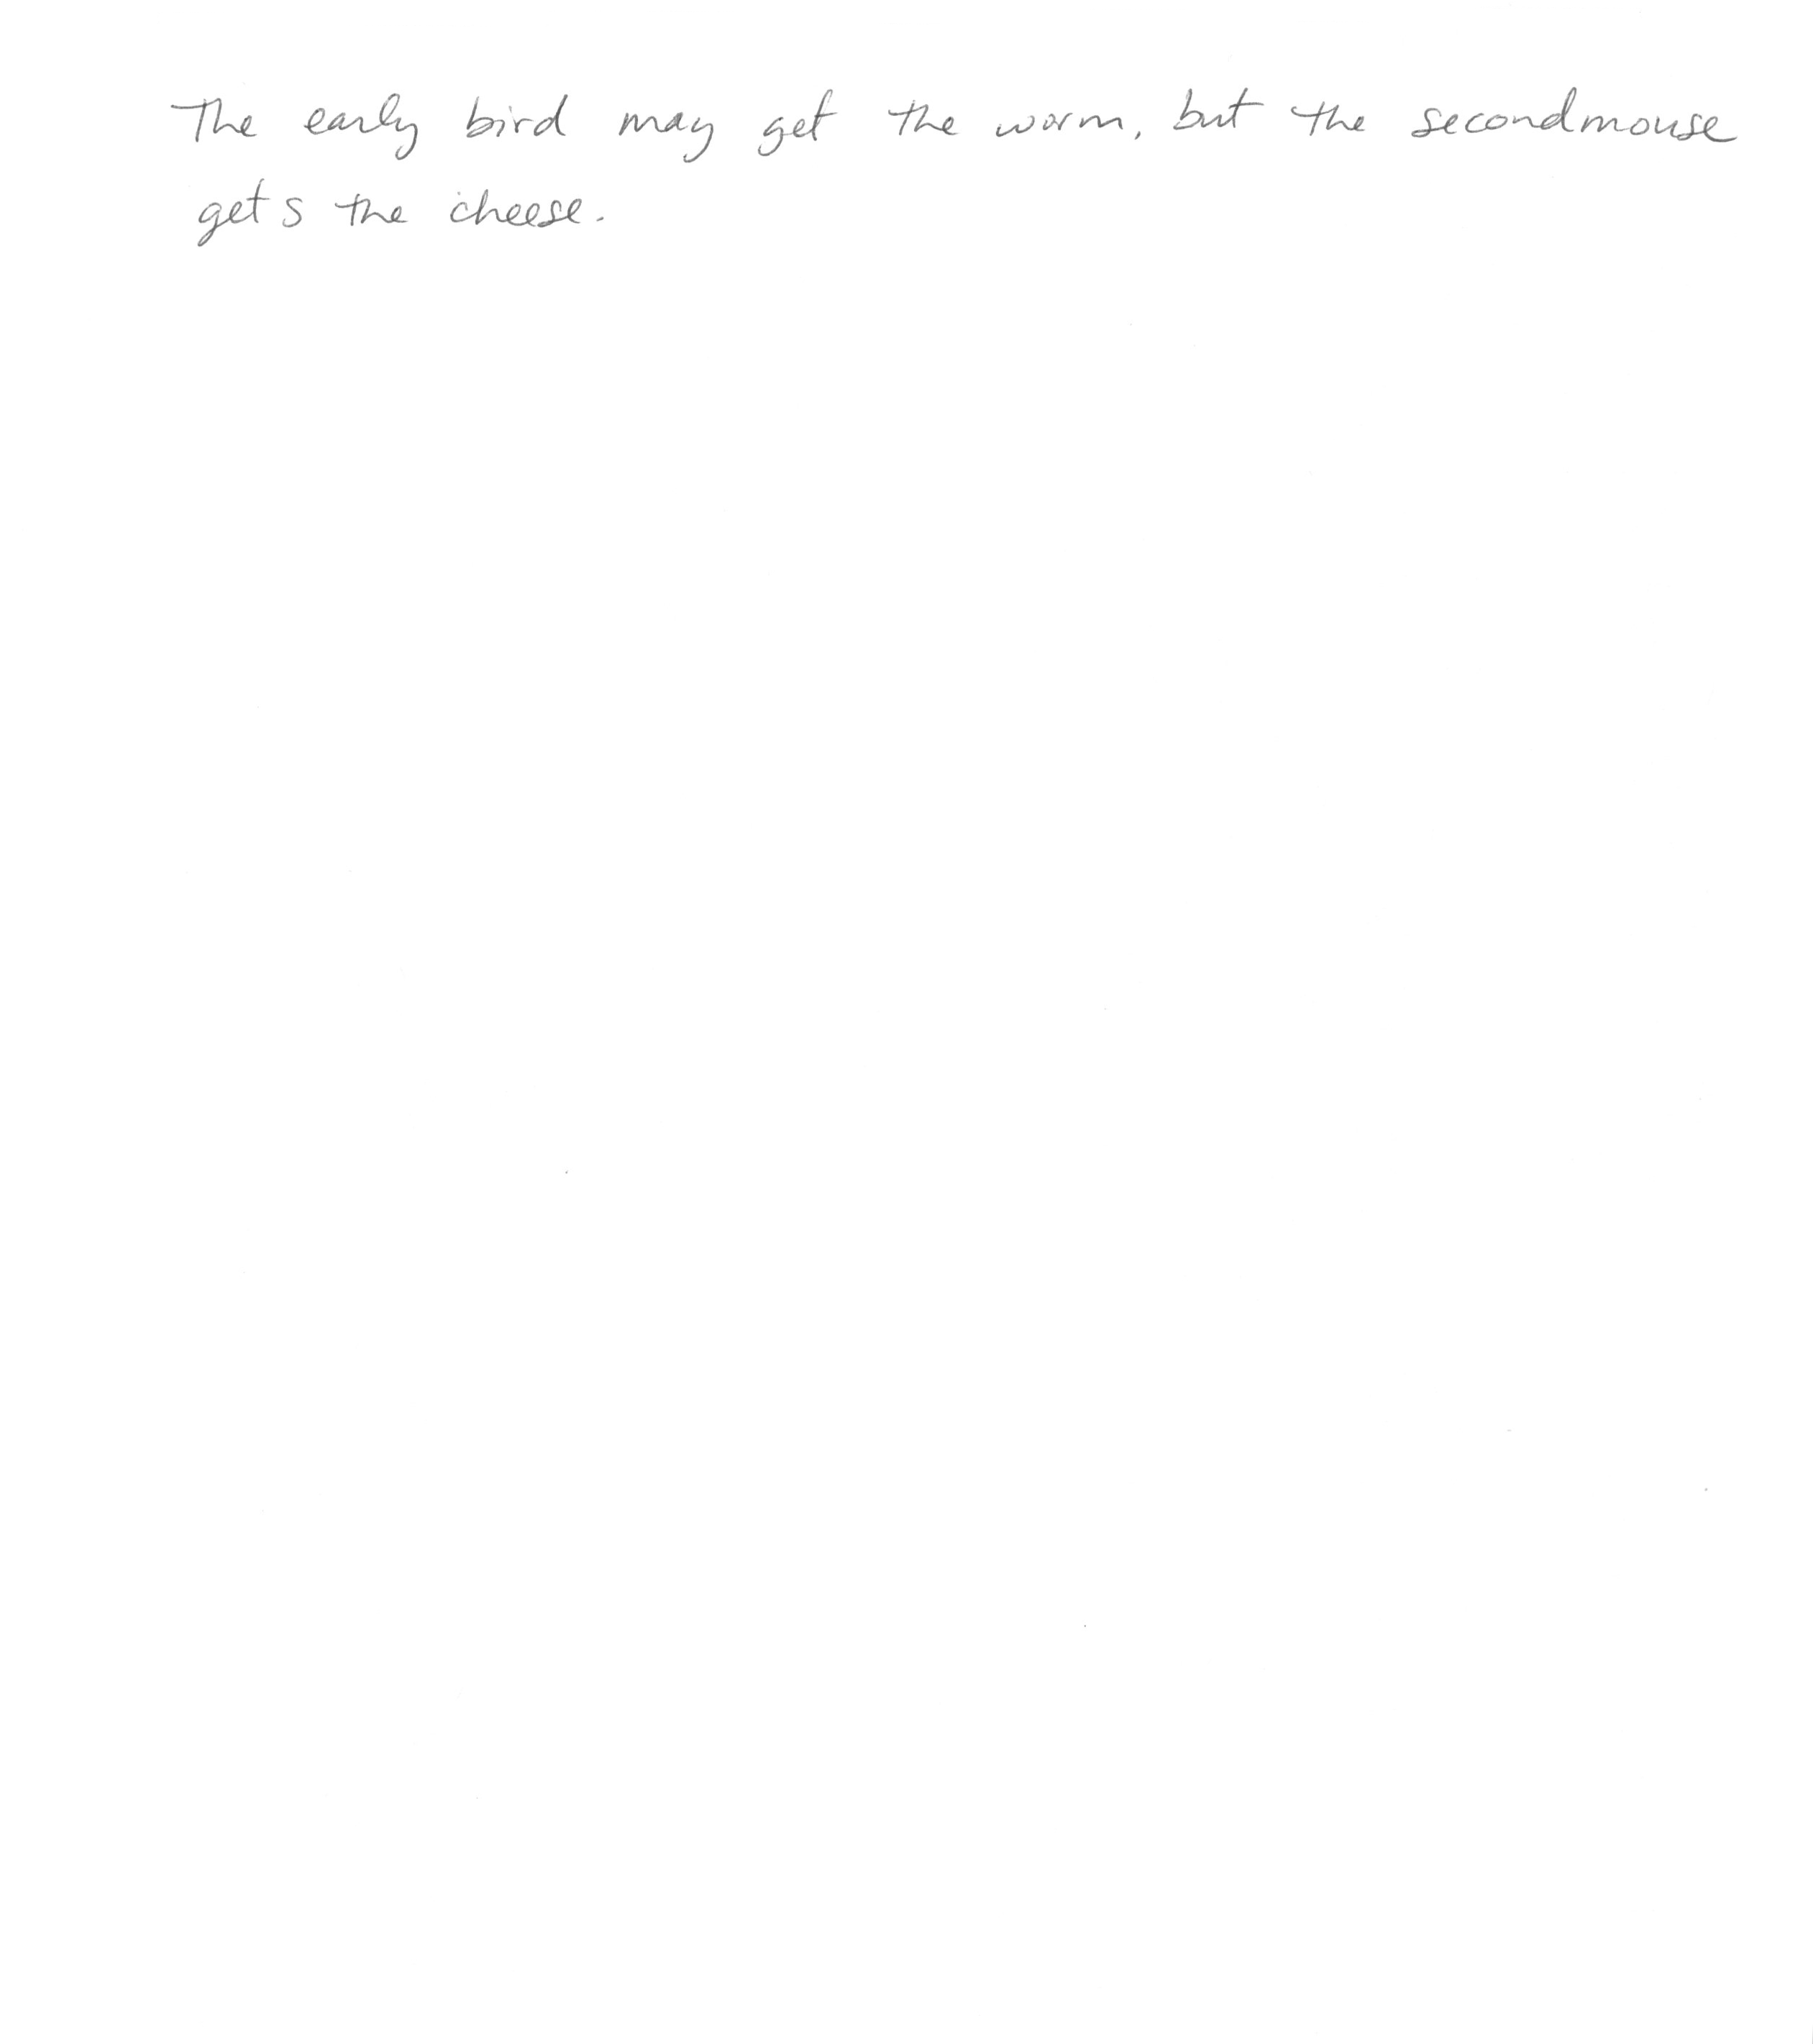 The early bird may get the worm, but the secondmouse
gets the cheese.